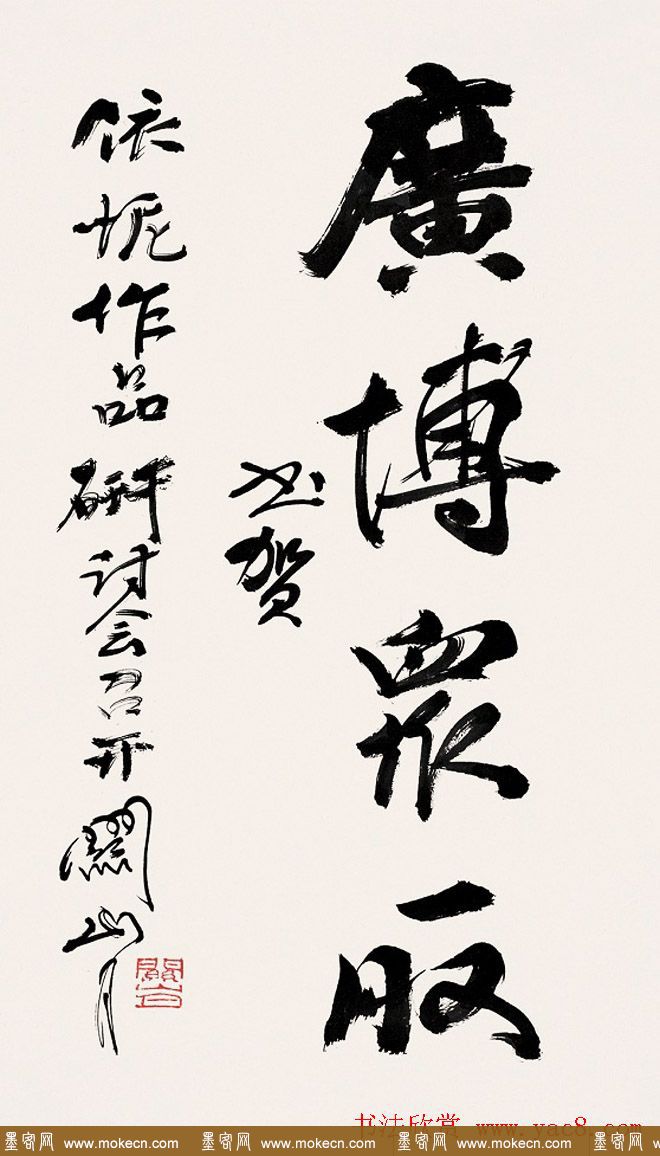 廣博眾取
书贺
依妮作品研讨会召开
關山月
书法欣赏 www.yac8.com
墨客网 www.mokecn.com 墨客网 www.mokecn.com 墨客网 www.mokecn.com 墨客网 w